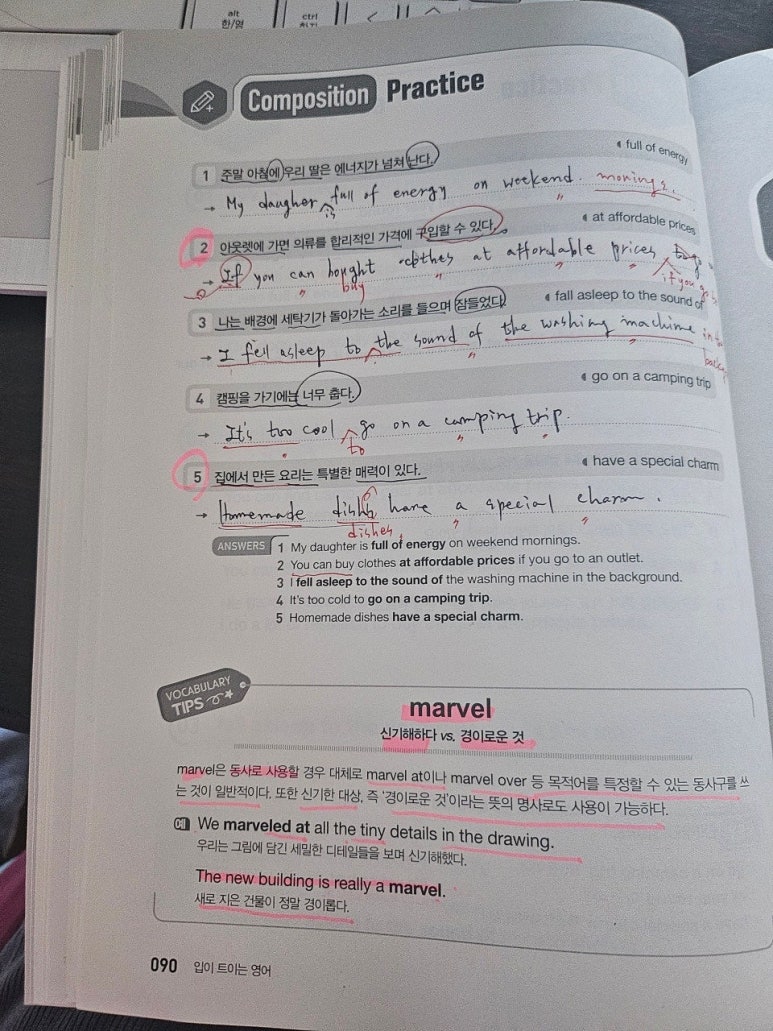 alt
한/영
ctrl
Composition Practice
full of energy
1 주말 아침에 우리 딸은 에너지가 넘쳐 난다.
→ My daugher is full of energy on weekend. mornings.
at affordable prices
2 아웃렛에 가면 의류를 합리적인 가격에 구입할 수 있다.
→ If you can bought clothes at affordable prices
buy if you go
fall asleep to the sound of
3 나는 배경에 세탁기가 돌아가는 소리를 들으며 잠들었다.
→ I fell asleep to the sound of the washing machime in
go on a camping trip
4 캠핑을 가기에는 너무 춥다.
→ It's too cool go on a camping trip.
to
have a special charm
5 집에서 만든 요리는 특별한 매력이 있다.
→ Homemade have a special charm.
dishes
ANSWERS 1 My daughter is full of energy on weekend mornings.
2 You can buy clothes at affordable prices if you go to an outlet.
3 I fell asleep to the sound of the washing machine in the background.
4 It's too cold to go on a camping trip.
5 Homemade dishes have a special charm.
VOCABULARY
TIPS
marvel
신기해하다 vs. 경이로운 것
marvel은 동사로 사용할 경우 대체로 marvel at이나 marvel over 등 목적어를 특정할 수 있는 동사구를 쓰
는 것이 일반적이다. 또한 신기한 대상, 즉 '경이로운 것'이라는 뜻의 명사로도 사용이 가능하다.
예 We marveled at all the tiny details in the drawing.
우리는 그림에 담긴 세밀한 디테일들을 보며 신기해했다.
The new building is really a marvel.
새로 지은 건물이 정말 경이롭다.
090 입이 트이는 영어